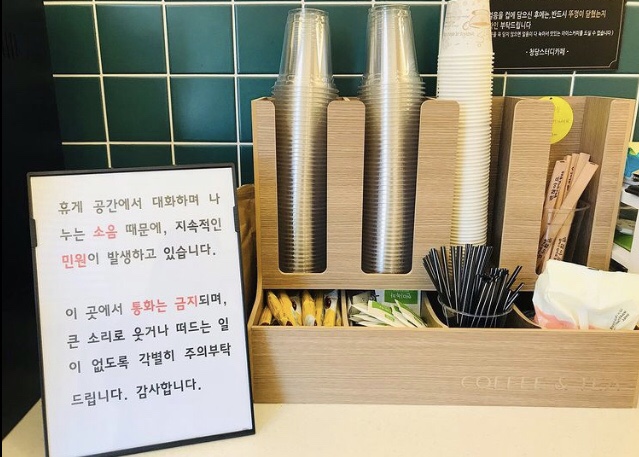 음을 컵에 담으신 후에는, 반드시 뚜껑이 닫혔는지
인 부탁드립니다
- 청담스터디카페 -
휴게 공간에서 대화하며 나
누는 소음 때문에, 지속적인
민원이 발생하고 있습니다.
이 곳에서 통화는 금지되며,
큰 소리로 웃거나 떠드는 일
이 없도록 각별히 주의부탁
드립니다. 감사합니다.
COFFEE & TEA